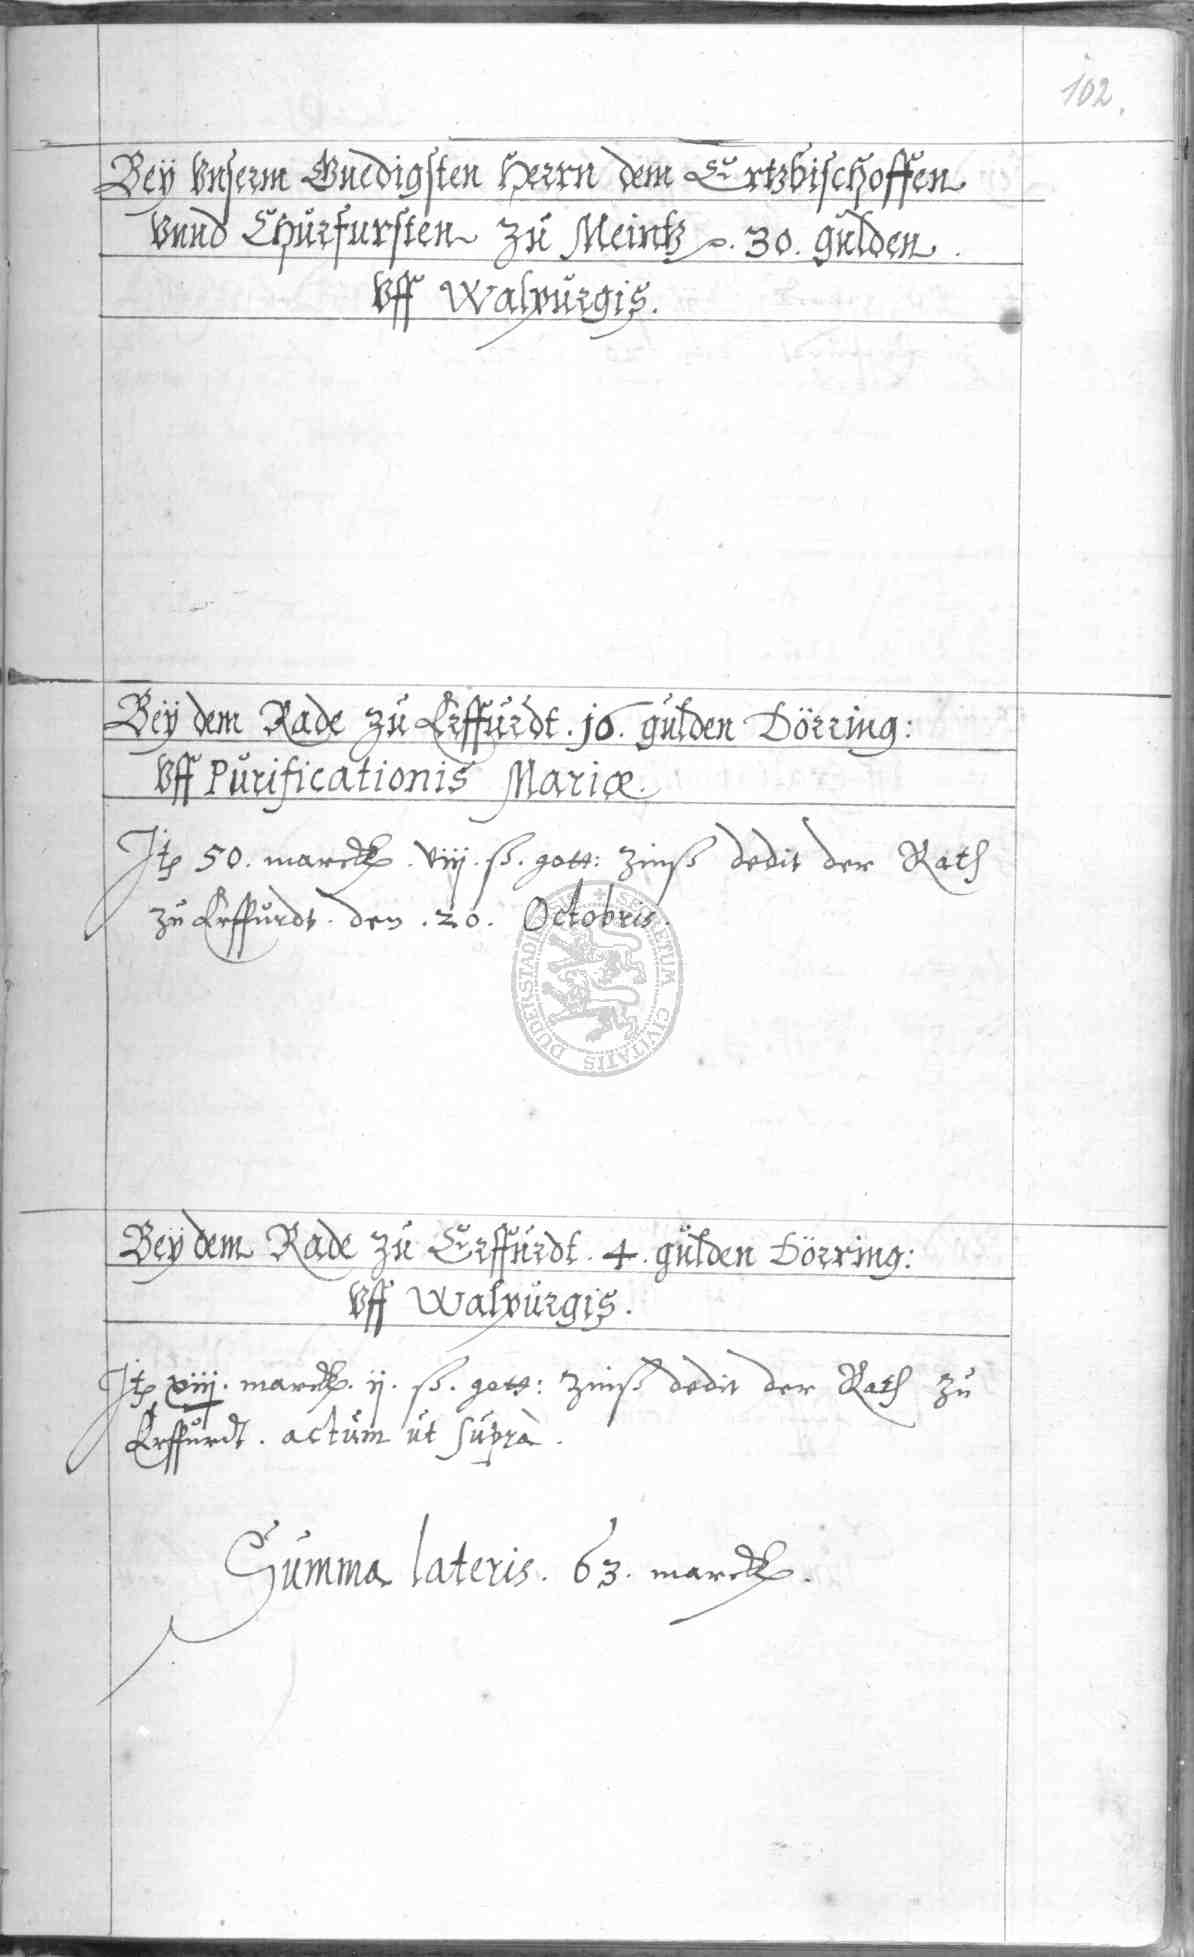 102.
Beÿ Vnserm Gnedigsten Herrn dem Ertzbischoffen
Vnnd Churfursten zu Meintz 30. gulden.
Vff Walpurgis.
Beÿ dem Rade zu Erffurdt. 16. gulden Dörring:
Vff Purificationis Mariæ.
Itp 50. marck. viij. ß. gott: Zinß dedit der Rath
zu Erffurdt. den. 20. Octobris.
SECRETUM CIVITATIS DUDERSTADIENSIS
Beÿ dem Rade zu Erffurdt. 4. gulden Dörring:
Vff Walpurgis.
Itp xiij. marck. ij. ß. gott: Zinß dedit der Rath zu
Erffurdt. actum ut suprà.
Summa lateris. 63. marck.